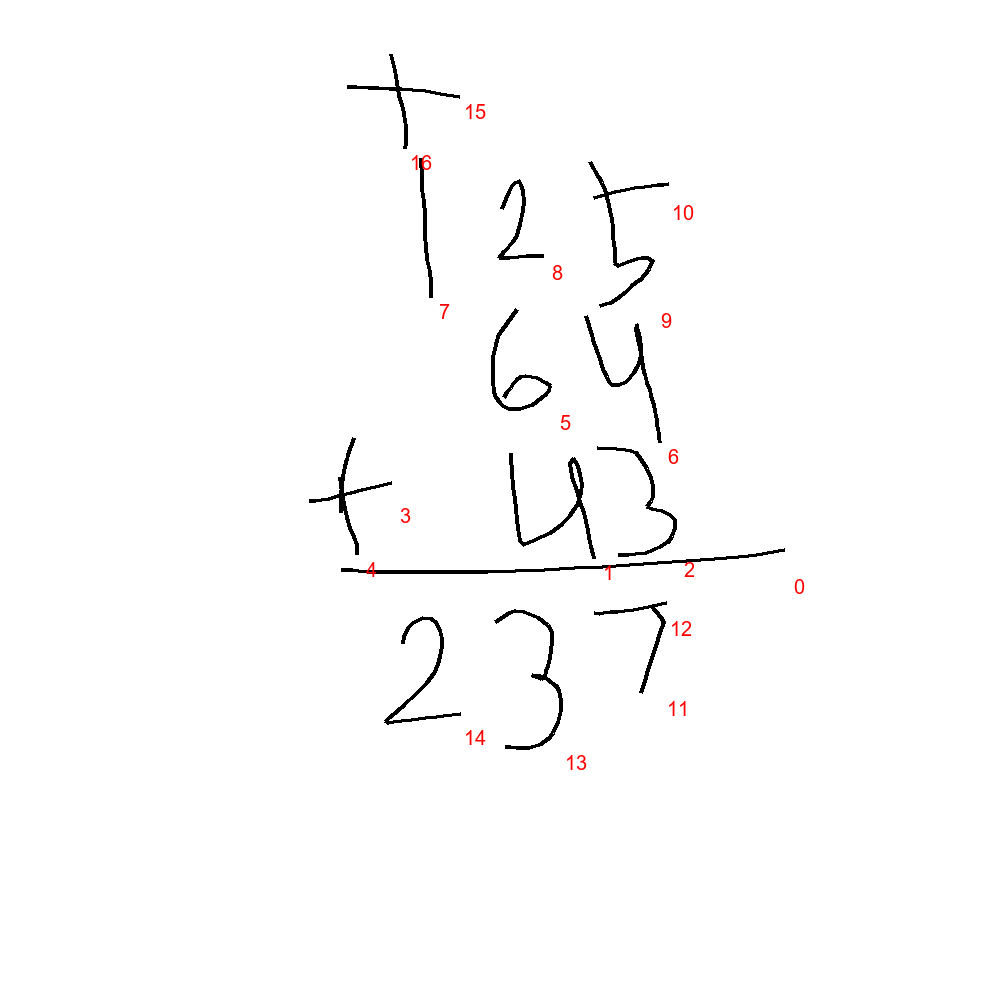 + 15
16
1 2 5 10
8
7
9
6 4
5
6
+ 4 3
3
4 1 2 0
2 3 7 12
11
14
13